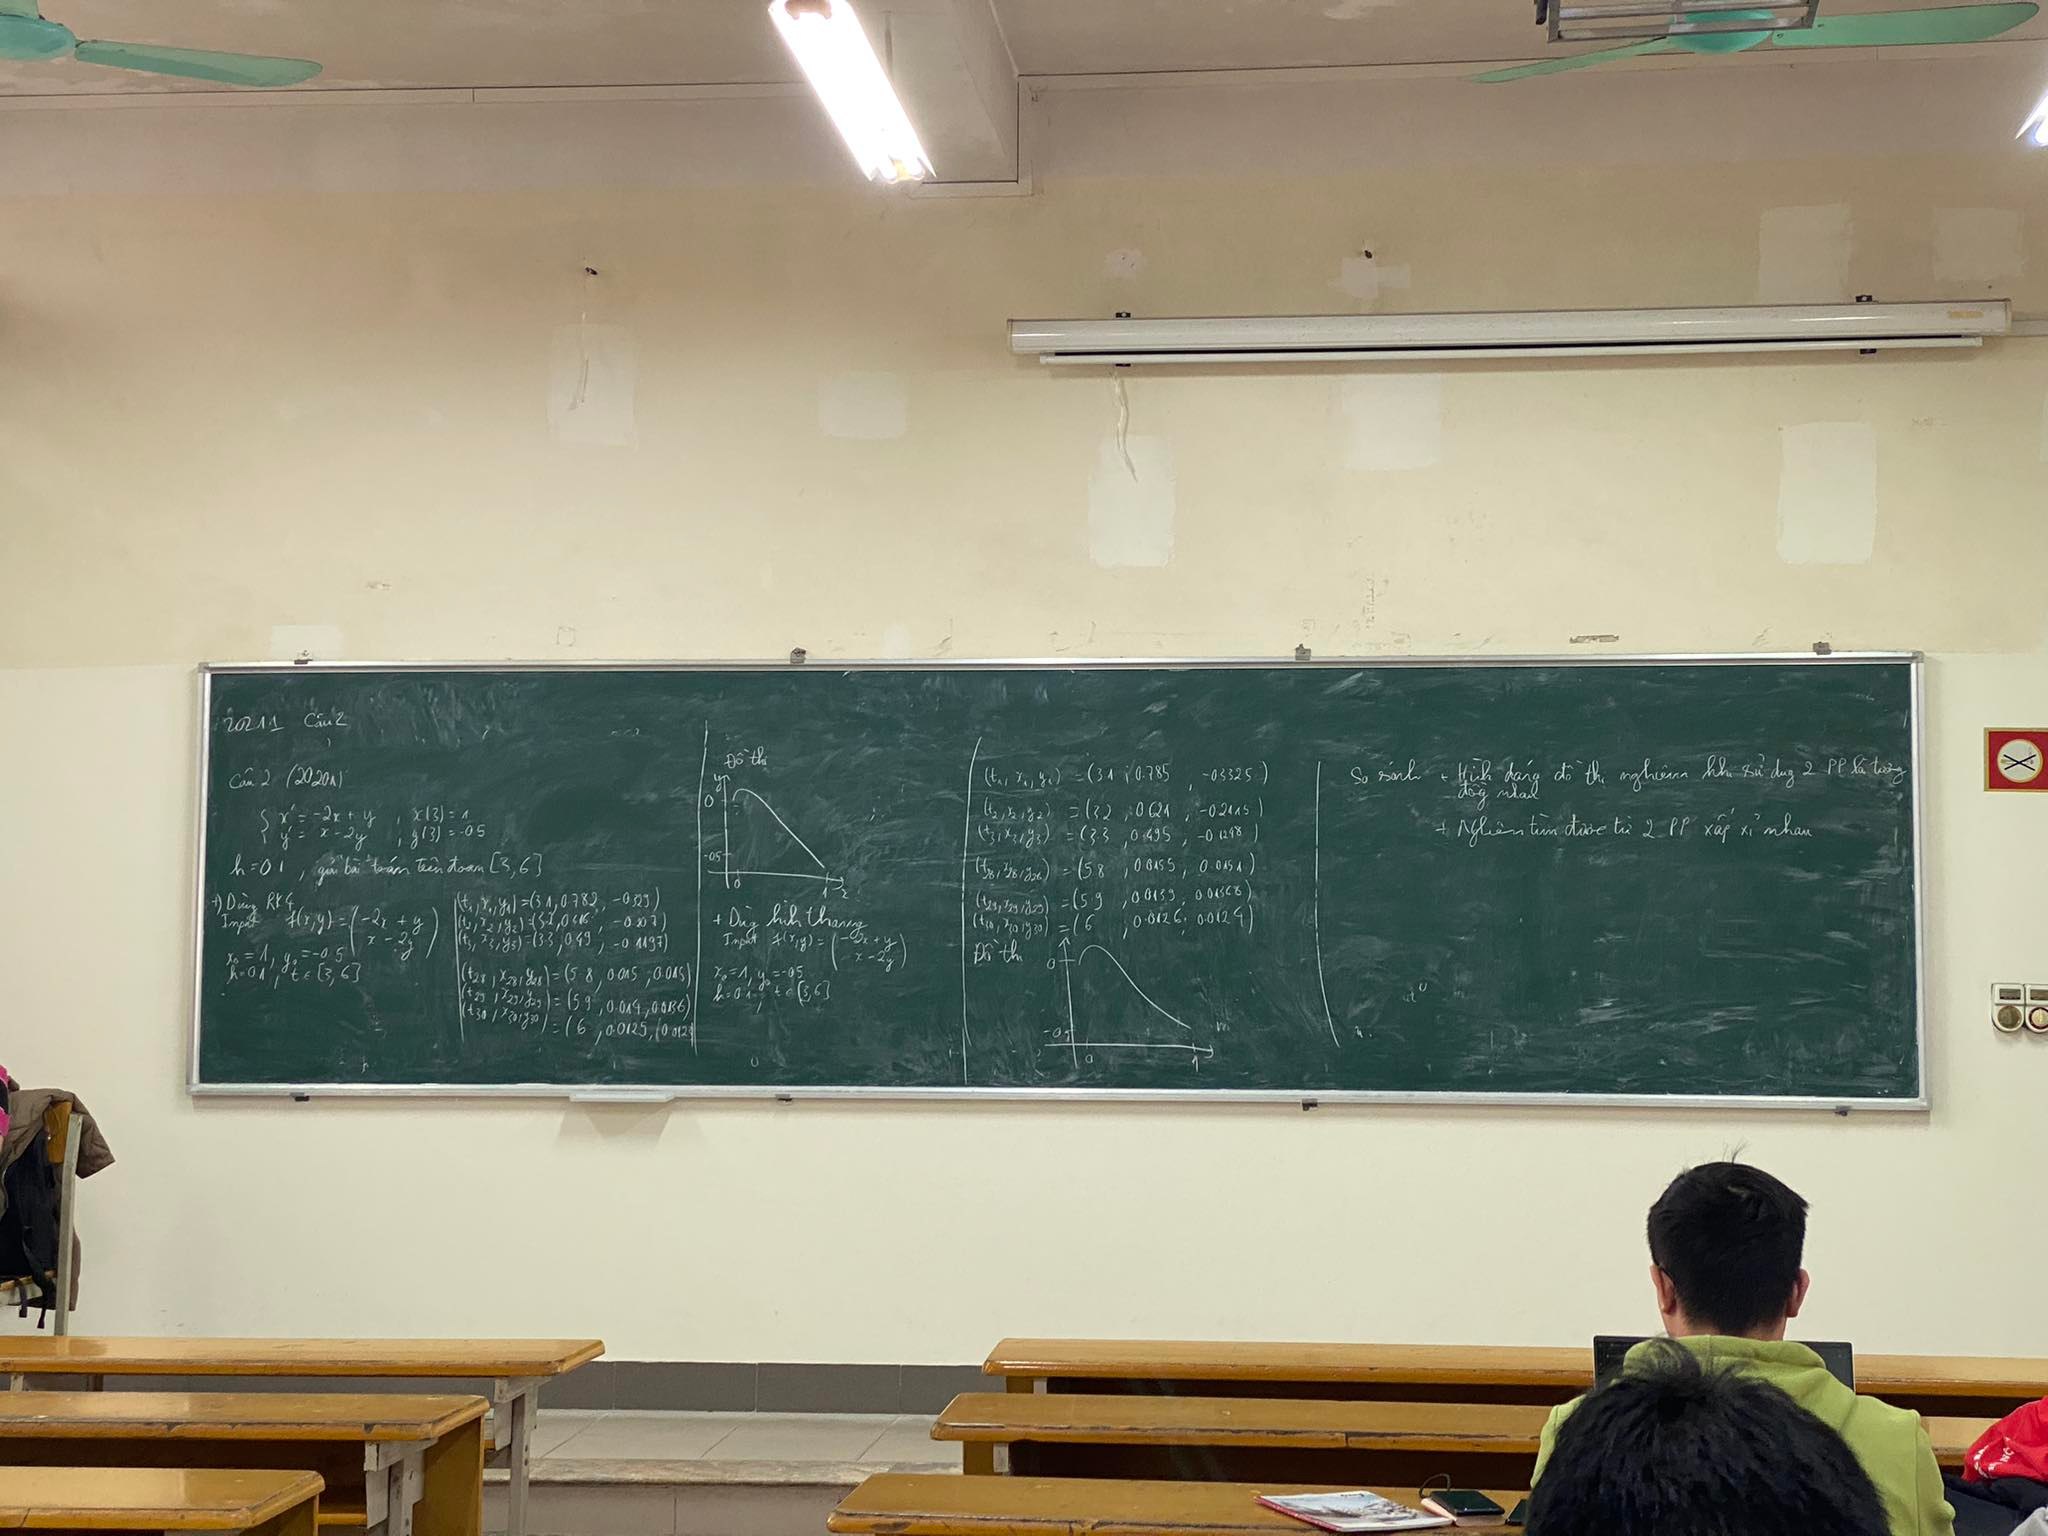 20211 Câu 2
Câu 2 (20201)
x' = -2x + y , x(3) = 1
y' = x - 2y , y(3) = -0.5
h = 0.1 , giải bài toán trên đoạn [3, 6]
+) Dùng RK4
Input f(x,y) = (-2x + y
x - 2y)
x₀ = 1, y₀ = -0.5
h = 0.1, t ∈ [3, 6]
(t₁, x₁, y₁) = (3.1, 0.782, -0.329)
(t₂, x₂, y₂) = (3.2, 0.616, -0.207)
(t₃, x₃, y₃) = (3.3, 0.49, -0.1197)
(t₂₈, x₂₈, y₂₈) = (5.8, 0.015, 0.015)
(t₂₉, x₂₉, y₂₉) = (5.9, 0.014, 0.0136)
(t₃₀, x₃₀, y₃₀)
= (6, 0.0125, 0.0123
Đồ thị
y
0
-0.5
0 1 x
+ Dùng hình thang
Input f(x,y) = (-2x + y
x - 2y)
x₀ = 1, y₀ = -0.5
h = 0.1, t ∈ [3, 6]
(t₁, x₁, y₁) = (3.1, 0.785, -0.3325)
(t₂, x₂, y₂) = (3.2, 0.621, -0.2115)
(t₃, x₃, y₃) = (3.3, 0.495, -0.1248)
(t₂₈, x₂₈, y₂₈) = (5.8, 0.0155, 0.0151)
(t₂₉, x₂₉, y₂₉) = (5.9, 0.0139, 0.01368)
(t₃₀, x₃₀, y₃₀) = (6, 0.0126, 0.0124)
Đồ thị
0
-0.5
0 1
So sánh + Hình dáng đồ thị nghiệm khi sử dụng 2 PP là tương
đồng nhau
+ Nghiệm tìm được từ 2 PP xấp xỉ nhau